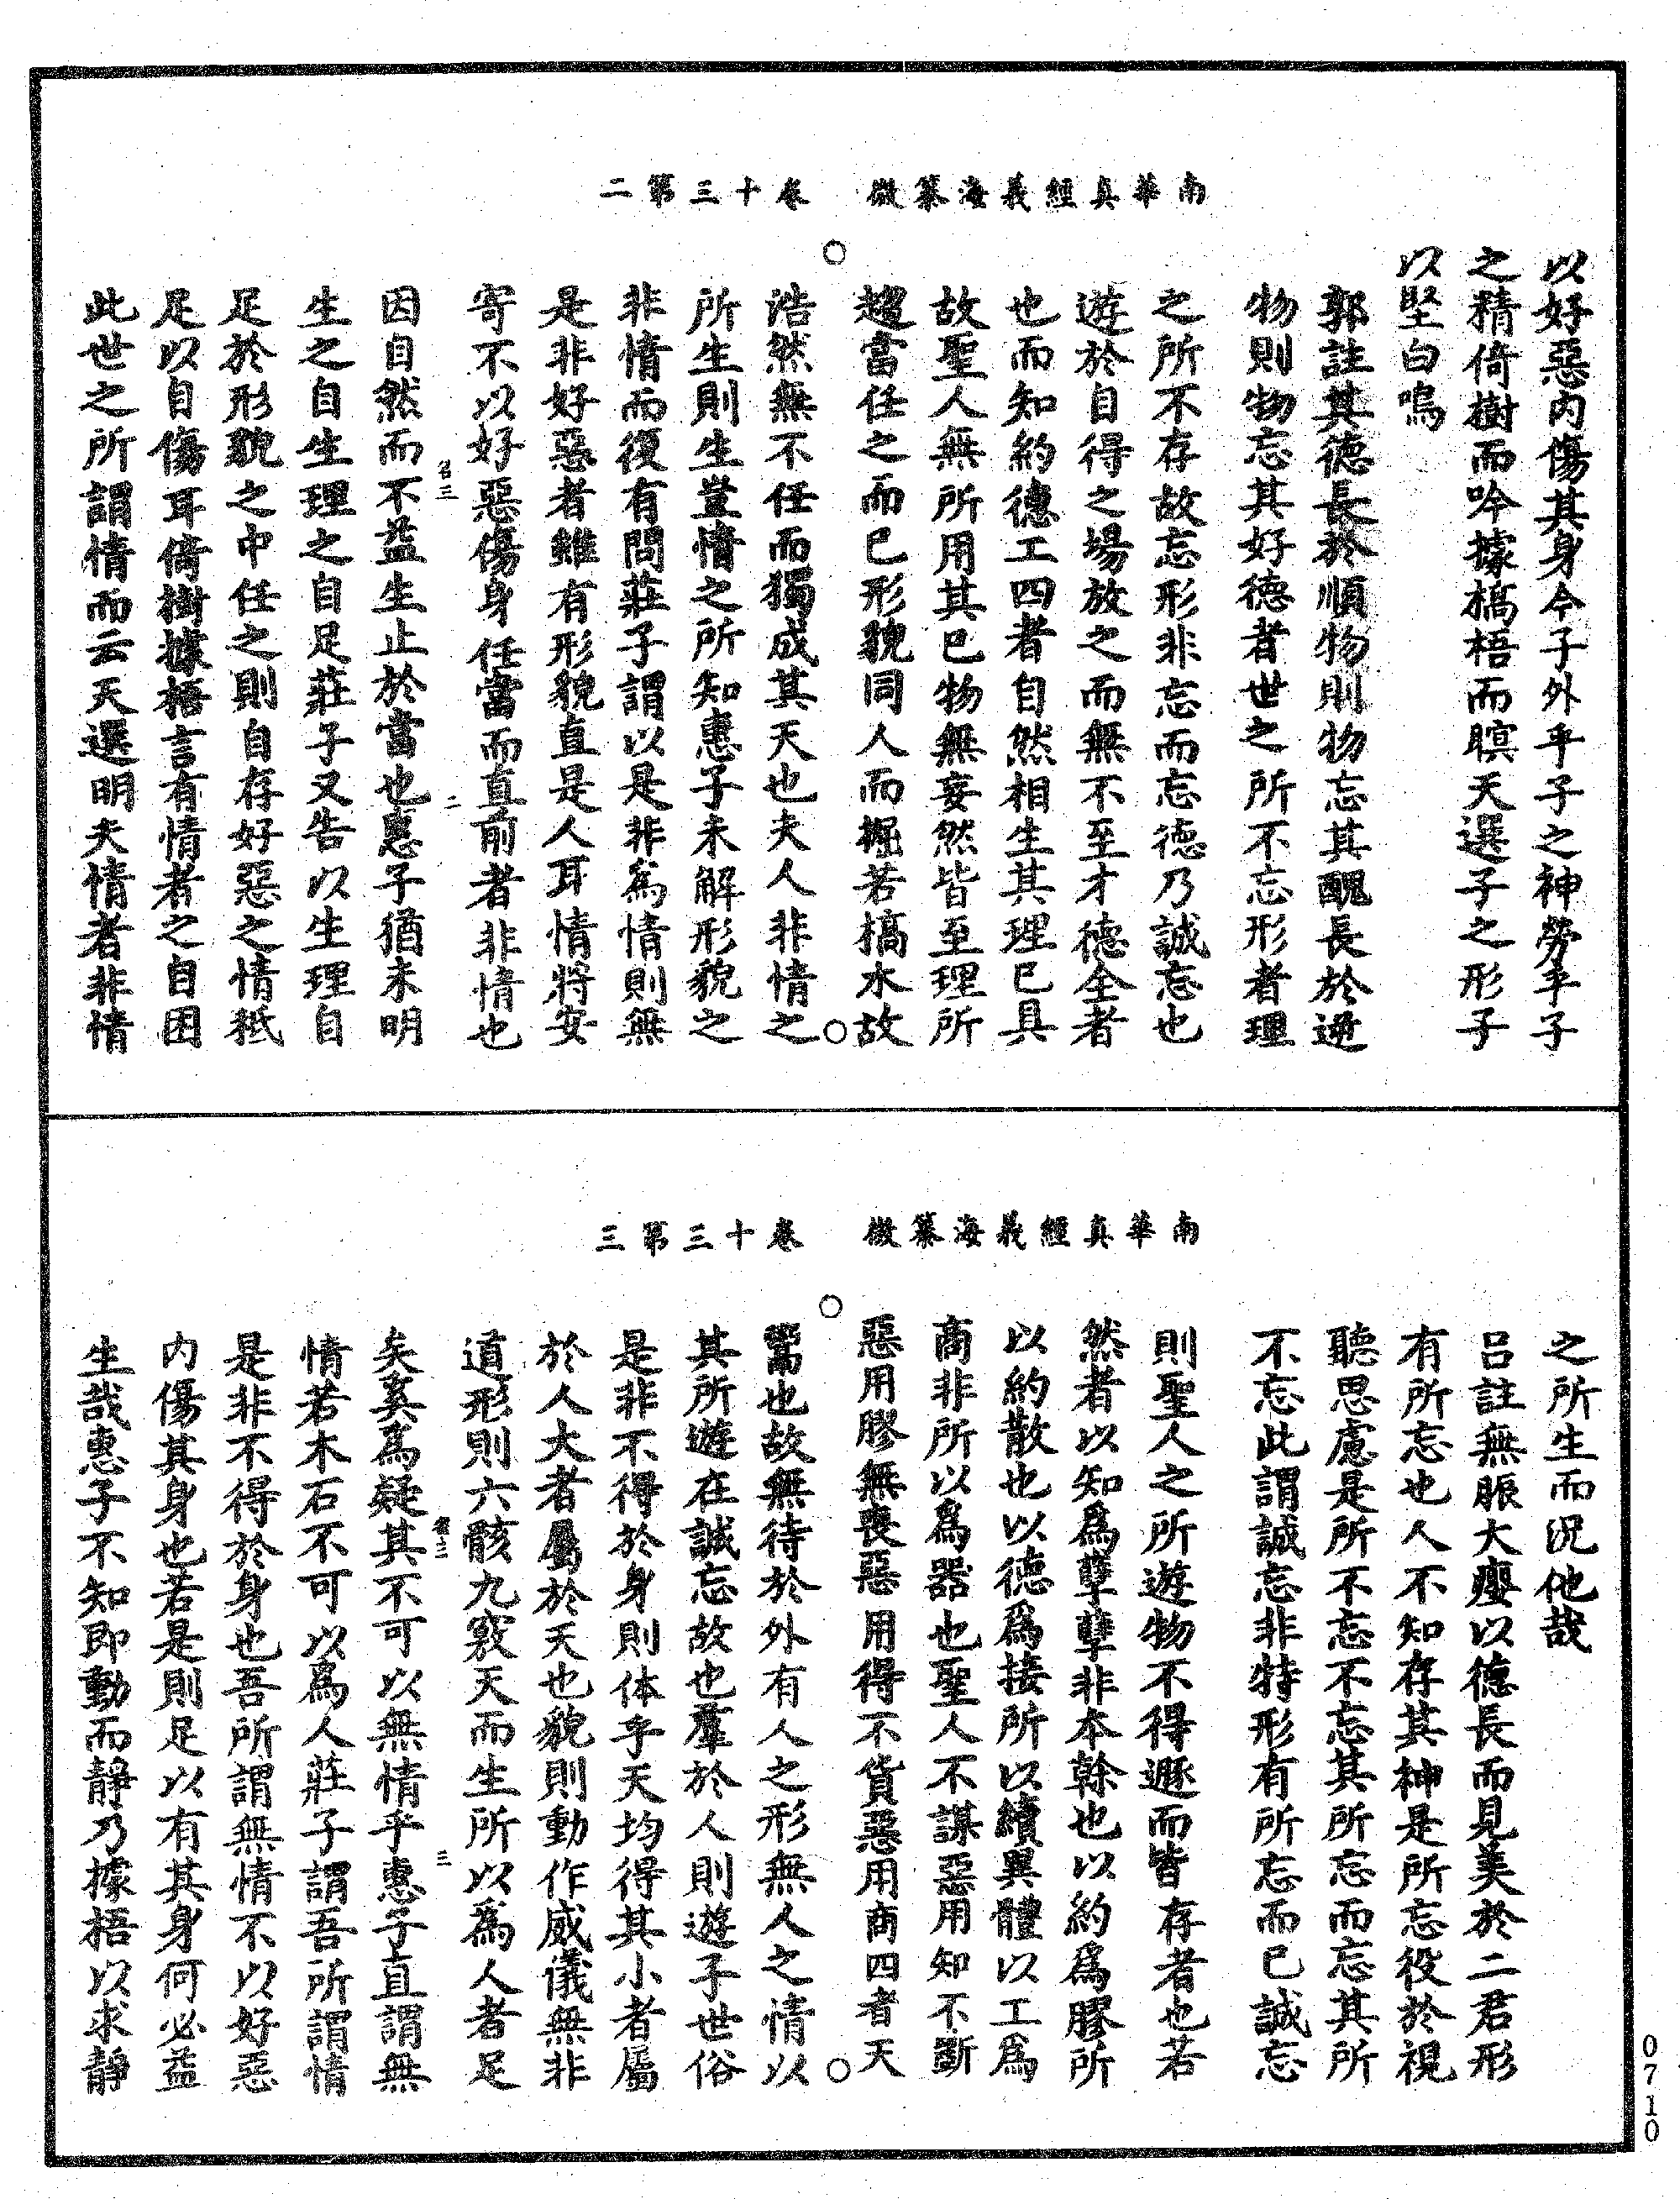 南華真經義海纂微　卷十三第二
以好惡内傷其身今子外乎子之神勞乎子
之精倚樹而吟據槁梧而瞑天選子之形子
以堅白鳴
郭註其德長於順物則物忘其醜長於逆
物則物忘其好德者世之所不忘形者理
之所不存故忘形非忘而忘德乃誠忘也
遊於自得之場放之而無不至才德全者
也而知約德工四者自然相生其理已具
故聖人無所用其已物無妄然皆至理所
趣當任之而已形貌同人而掘若槁木故
浩然無不任而獨成其天也夫人非情之
所生則生豈情之所知惠子未解形貌之
非情而復有問莊子謂以是非爲情則無
是非好惡者雖有形貌直是人耳情將安
寄不以好惡傷身任當而直前者非情也
因自然而不益生止於當也惠子猶未明
生之自生理之自足莊子又告以生理自
足於形貌之中任之則自存好惡之情祇
足以自傷耳倚樹據梧言有情者之自困
此世之所謂情而云天選明夫情者非情
南華真經義海纂微　卷十三第三
之所生而況他哉
吕註無脤大癭以德長而見美於二君形
有所忘也人不知存其神是所忘役於視
聽思慮是所不忘不忘其所忘而忘其所
不忘此謂誠忘非特形有所忘而已誠忘
則聖人之所遊物不得遯而皆存者也若
然者以知爲孽孽非本榦也以約爲膠所
以約散也以德爲接所以續異體以工爲
商非所以爲器也聖人不謀惡用知不斷
惡用膠無喪惡用得不貨惡用商四者天
鬻也故無待於外有人之形無人之情以
其所遊在誠忘故也羣於人則遊子世俗
是非不得於身則体乎天均得其小者屬
於人大者屬於天也貌則動作威儀無非
道形則六骸九竅天而生所以爲人者足
矣奚爲疑其不可以無情乎惠子直謂無
情若木石不可以爲人莊子謂吾所謂情
是非不得於身也吾所謂無情不以好惡
内傷其身也若是則足以有其身何必益
生哉惠子不知即動而靜乃據梧以求靜
0710